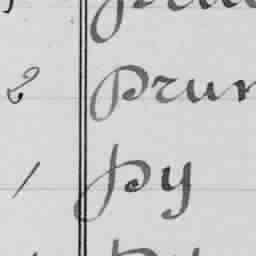 2 Prun
1 Py